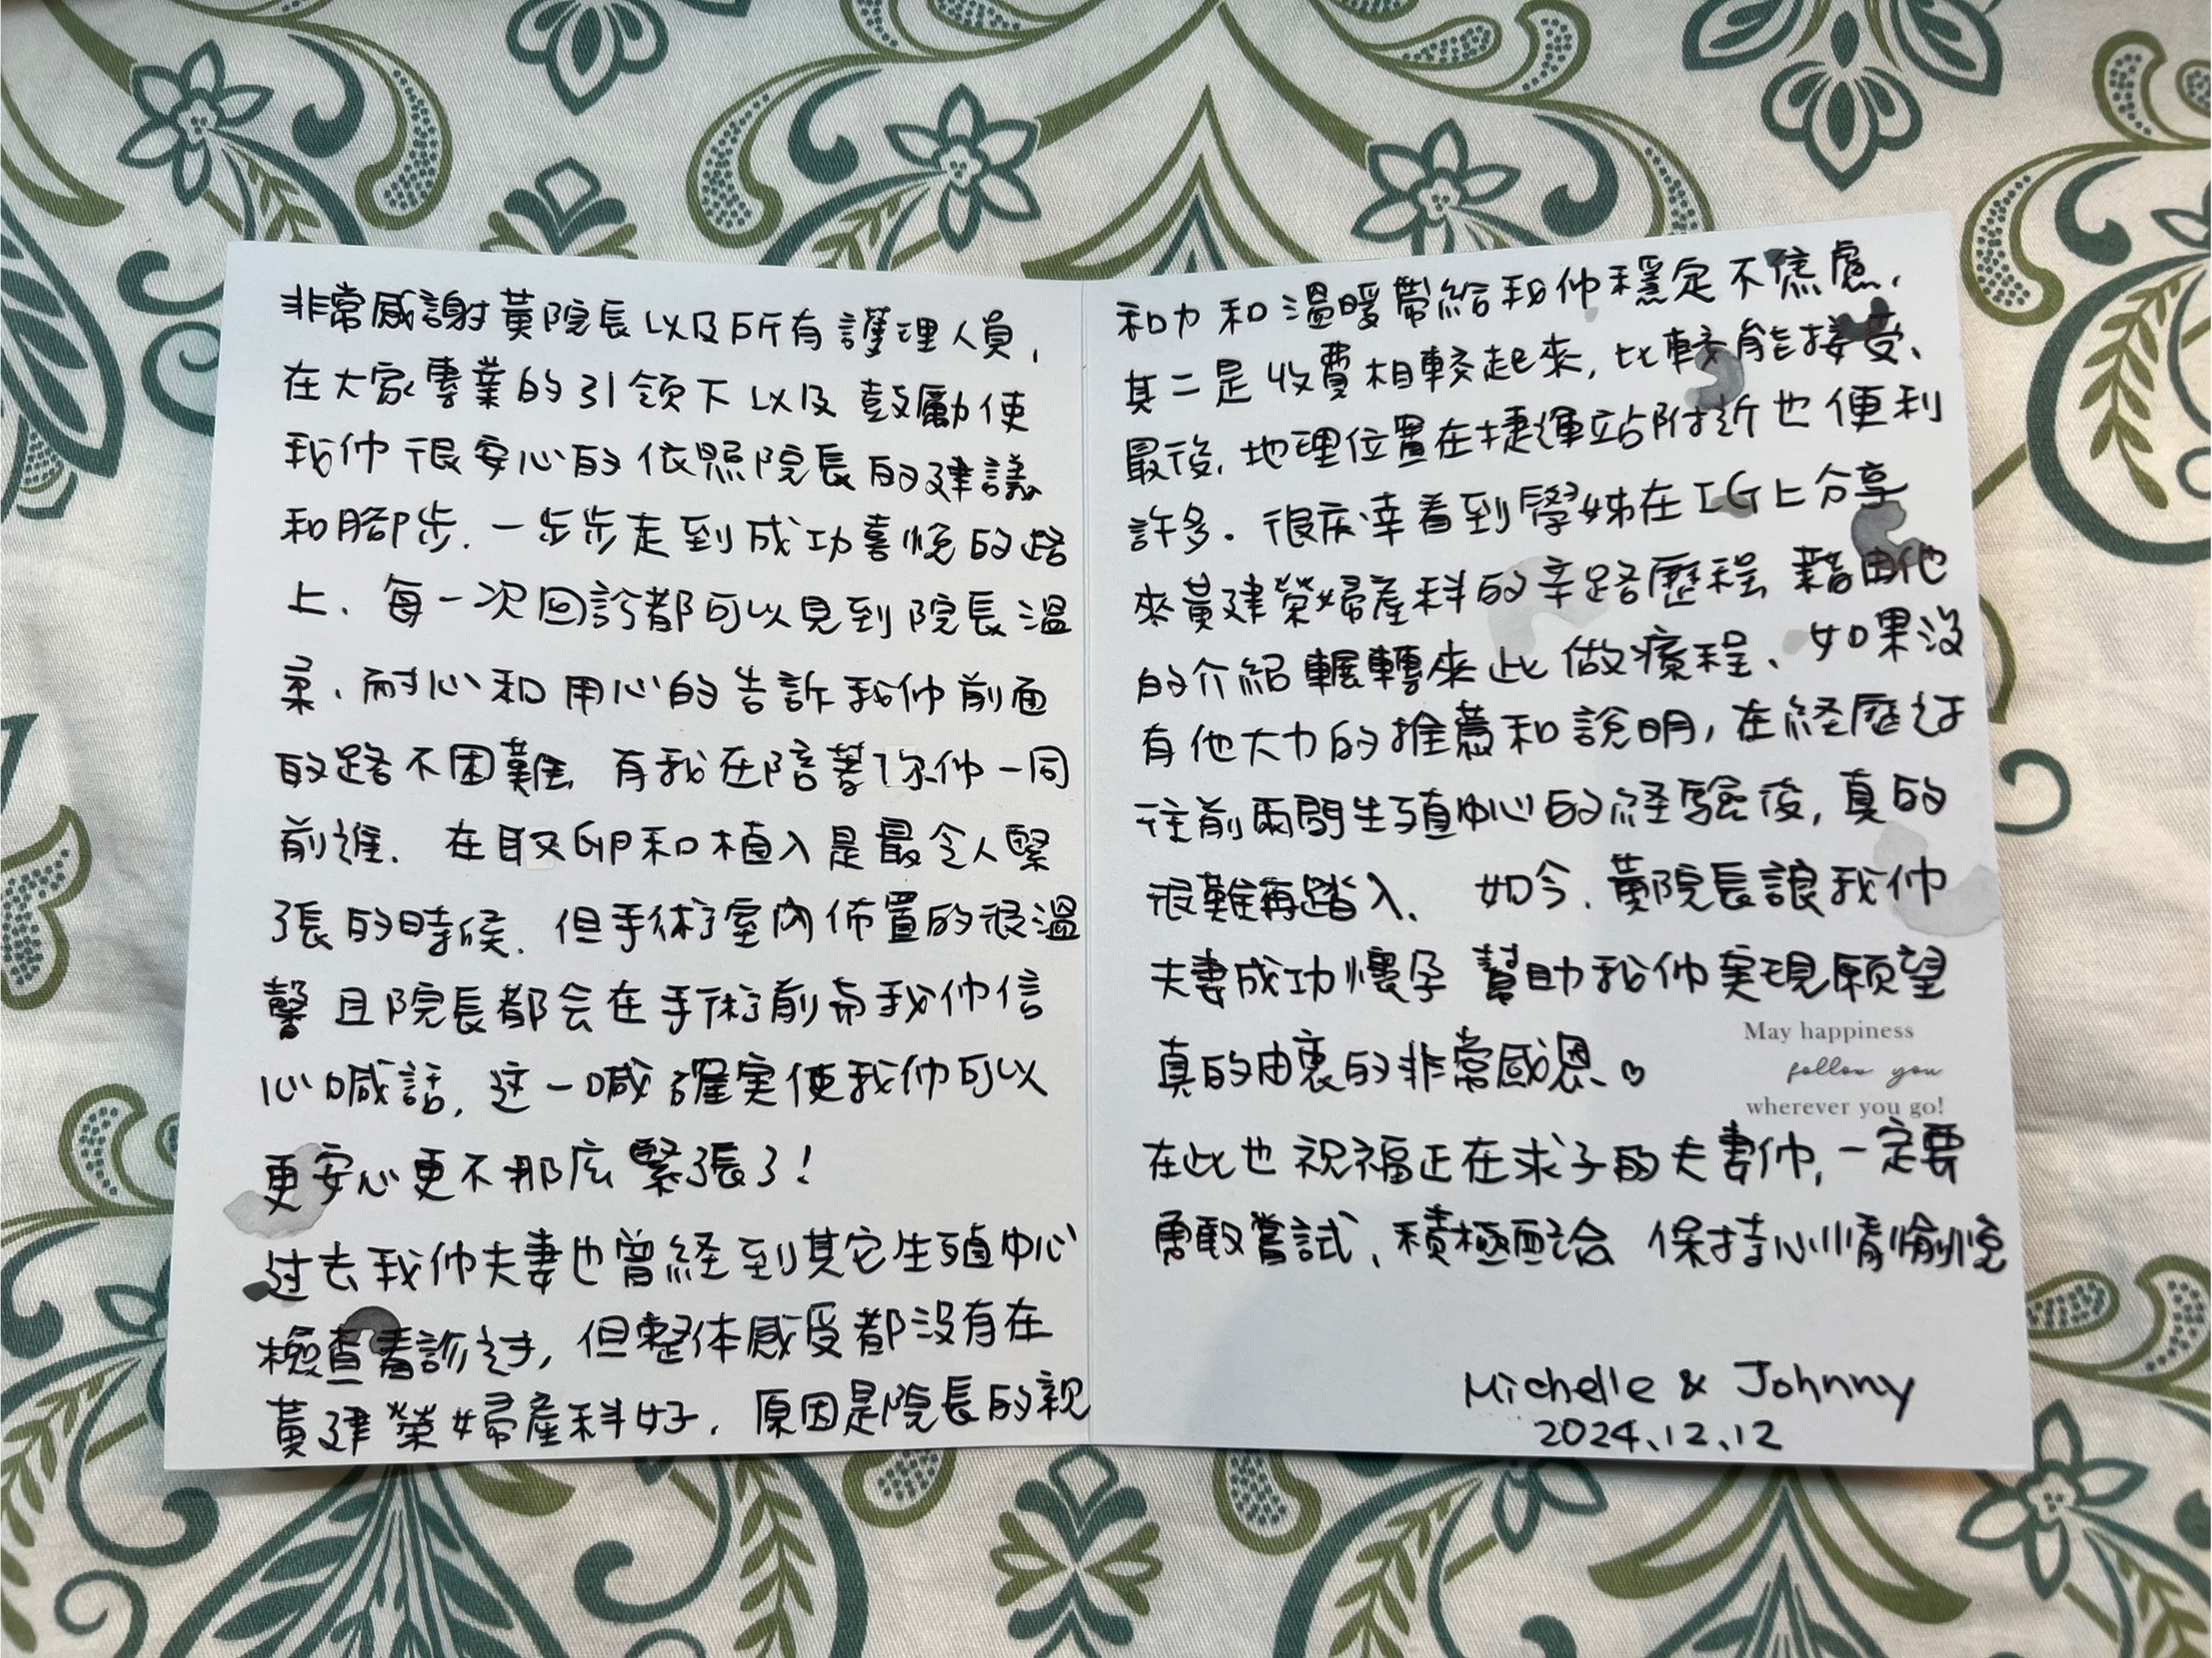 非常感謝黃院長以及所有護理人員,
在大家專業的引領下以及鼓勵使
我们很安心的依照院長的建議
和腳步、一步步走到成功喜悅的路
上、每一次回診都可以見到院長溫
柔、耐心和用心的告訴我们前面
的路不困難 有我在陪著你们一同
前進. 在取卵和植入是最令人緊
張的時候、但手術室內佈置的很溫
馨 且院長都会在手術前與我们信
心喊話, 这一喊確实使我们可以
更安心更不那麼緊張了!
过去我们夫妻也曾経到其它生殖中心
檢查看診过, 但整体感受都沒有在
黃建榮婦產科好. 原因是院長的親
和力和溫暖帶給我们穩定不焦慮、
其二是收費相較起來, 比較能接受、
最後, 地理位置在捷運站附近也便利
許多. 很庆幸看到學姊在IG上分享
來黃建榮婦產科的辛路歷程 藉由他
的介紹輾轉來此做療程、如果沒
有他大力的推薦和說明, 在経歷过
往前兩間生殖中心的経驗後, 真的
很難再踏入、 如今、黃院長讓我们
夫妻成功懷孕 幫助我们实現願望
真的由衷的非常感恩、♡
May happiness
follow you
wherever you go!
在此也祝福正在求子的夫妻们, 一定要
勇敢嘗試、積極配合 保持心情愉悅
Michelle & Johnny
2024.12.12